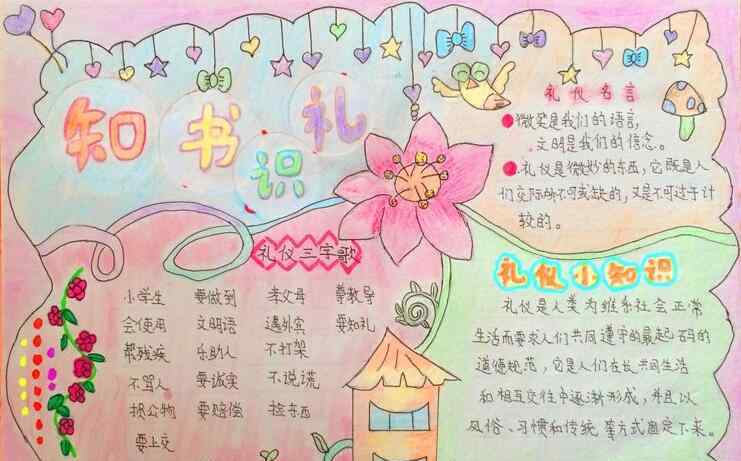 知书识礼
礼仪名言
微笑是我们的语言,
文明是我们的信念。
礼仪是微妙的东西,它既是人
们交际所不可或缺的,又是不可过于计
较的。
礼仪三字歌
小学生 要做到 孝父母 尊教导
会使用 文明语 遇外宾 要知礼
帮残疾 乐助人 不打架
不骂人 要诚实 不说谎
损公物 要赔偿 捡东西
要上交
礼仪小知识
礼仪是人类为维系社会正常
生活而要求人们共同遵守的最起码的
道德规范,它是人们在长共同生活
和相互交往中逐渐形成,并且以
风俗、习惯和传统等方式固定下来。